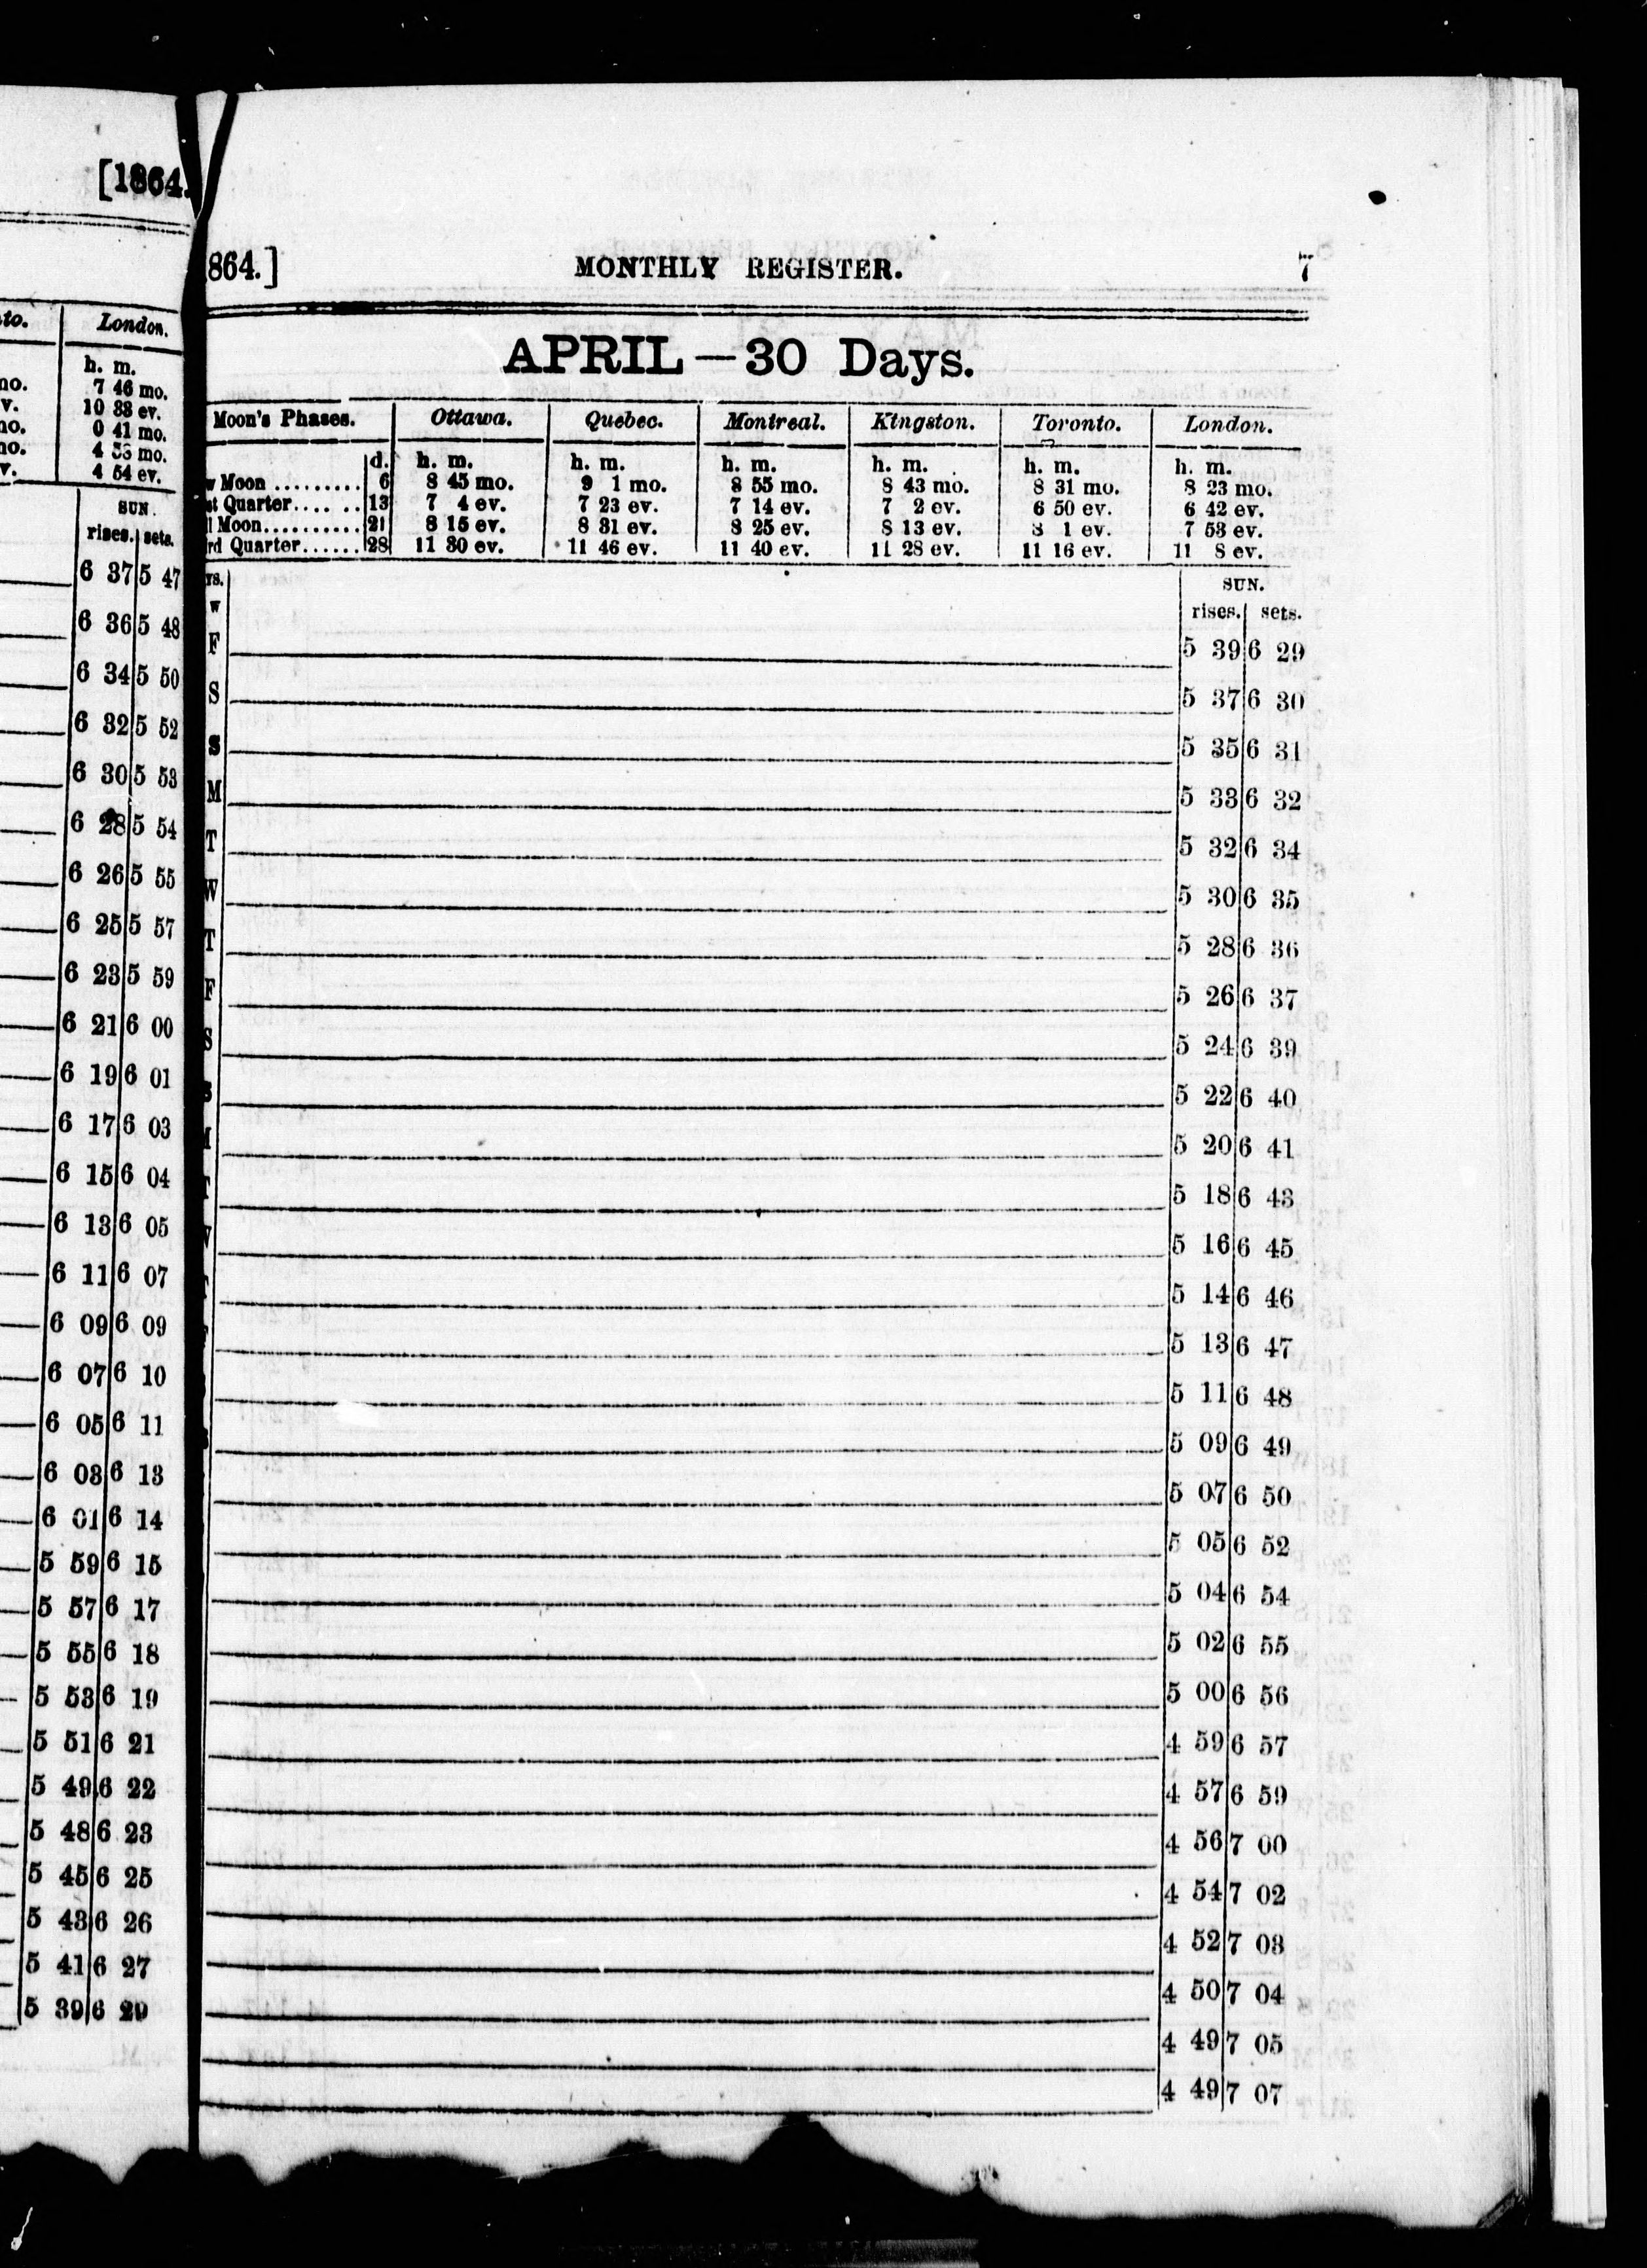 [1864.
London.
h. m.
7 46 mo.
10 38 ev.
0 41 mo.
mo.
4 54 ev.
SUN.
rises. sets.
6 37 5 47
6 36 5 48
6 34 5 50
6 32 5 52
6 30 5 53
6 28 5 54
6 26 5 55
6 25 5 57
6 23 5 59
6 21 6 00
6 19 6 01
6 17 6 03
6 15 6 04
6 13 6 05
6 11 6 07
6 09 6 09
6 07 6 10
6 05 6 11
6 03 6 13
6 01 6 14
5 59 6 15
5 57 6 17
5 55 6 18
5 53 6 19
5 51 6 21
5 49 6 22
5 48 6 23
5 45 6 25
5 43 6 26
5 41 6 27
5 39 6 29
864.] MONTHLY REGISTER. 7
APRIL—30 Days.
Moon's Phases. Ottawa. Quebec. Montreal. Kingston. Toronto. London.
d. h. m. h. m. h. m. h. m. h. m. h. m.
w Moon ......... 6 8 45 mo. 9 1 mo. 8 55 mo. 8 43 mo. 8 31 mo. 8 23 mo.
st Quarter.... .. 13 7 4 ev. 7 23 ev. 7 14 ev. 7 2 ev. 6 50 ev. 6 42 ev.
l Moon.......... 21 8 15 ev. 8 31 ev. 8 25 ev. 8 13 ev. 8 1 ev. 7 53 ev.
rd Quarter...... 28 11 30 ev. 11 46 ev. 11 40 ev. 11 28 ev. 11 16 ev. 11 8 ev.
YS. SUN.
W rises. sets.
F 5 39 6 29
S 5 37 6 30
S 5 35 6 31
M 5 33 6 32
T 5 32 6 34
W 5 30 6 35
T 5 28 6 36
F 5 26 6 37
S 5 24 6 39
S 5 22 6 40
5 20 6 41
5 18 6 43
5 16 6 45
5 14 6 46
5 13 6 47
5 11 6 48
5 09 6 49
5 07 6 50
5 05 6 52
5 04 6 54
5 02 6 55
5 00 6 56
4 59 6 57
4 57 6 59
4 56 7 00
4 54 7 02
4 52 7 03
4 50 7 04
4 49 7 05
4 49 7 07